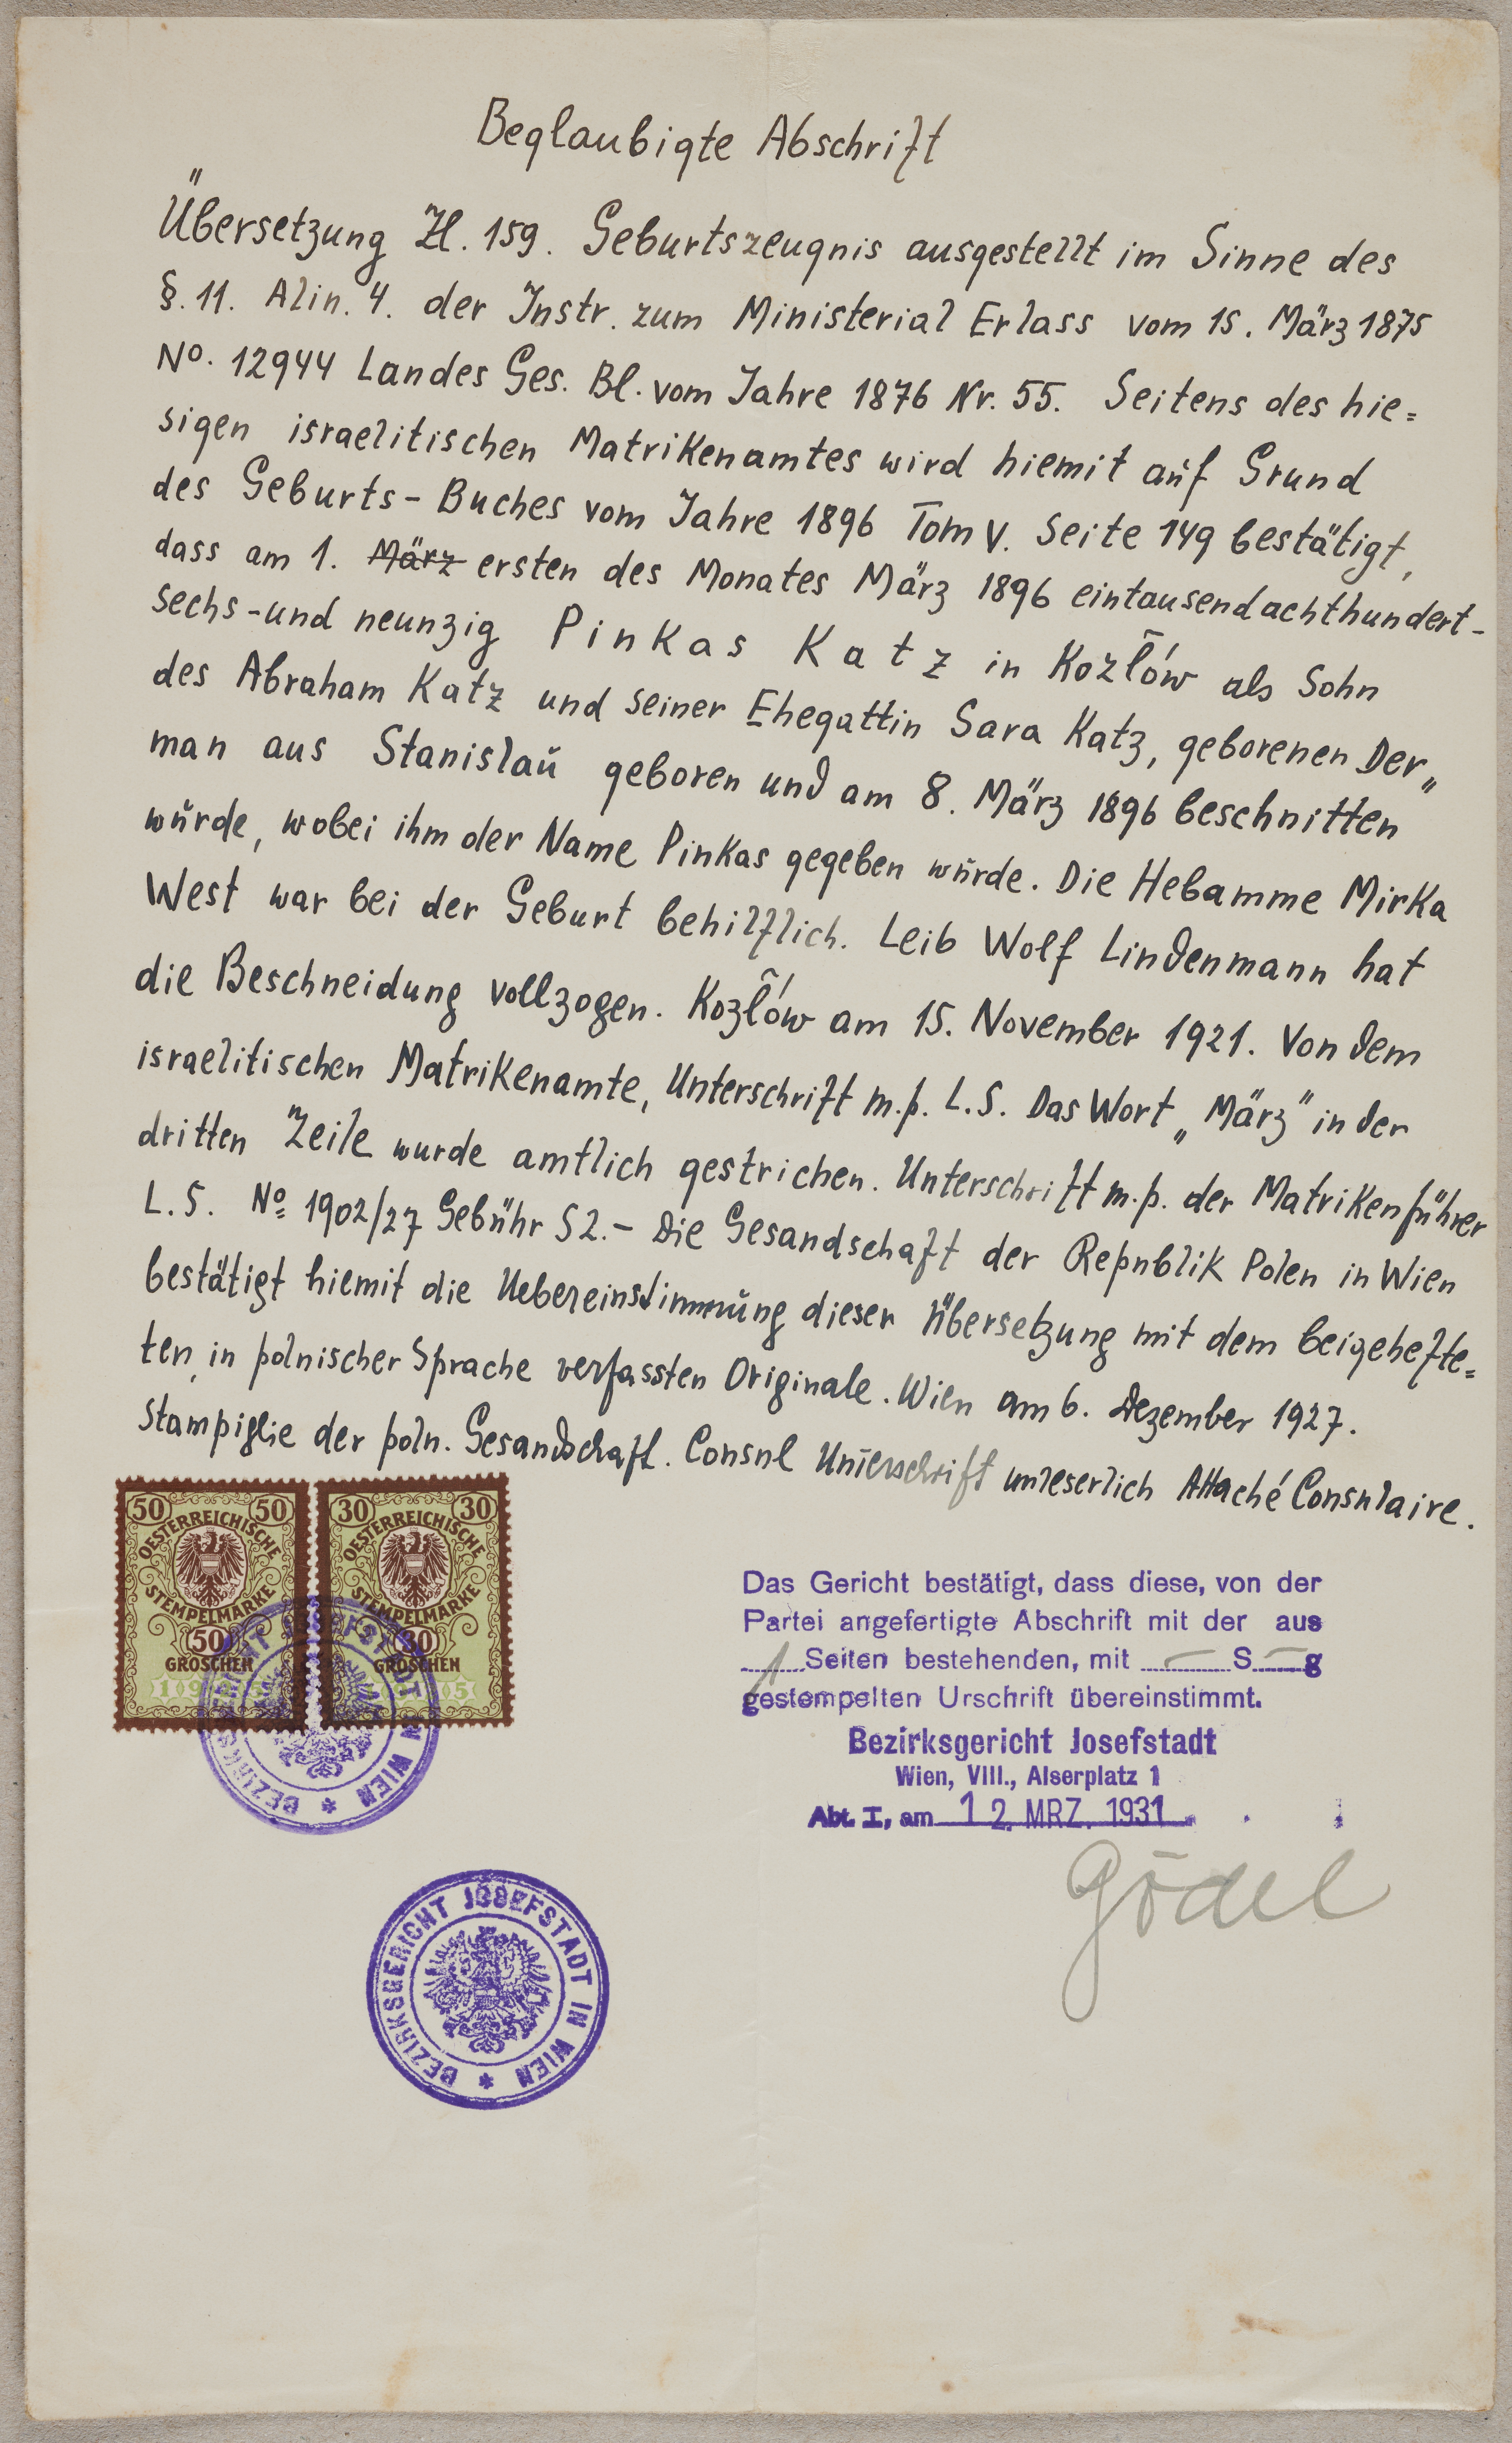 Beglaubigte Abschrift
Übersetzung Zl. 159. Geburtszeugnis ausgestellt im Sinne des
§. 11. Alin. 4. der Instr. zum Ministerial Erlass vom 15. März 1875
No. 12944 Landes Ges. Bl. vom Jahre 1876 Nr. 55. Seitens des hie=
sigen israelitischen Matrikenamtes wird hiemit auf Grund
des Geburts-Buches vom Jahre 1896 Tom V. Seite 149 bestätigt,
dass am 1. März ersten des Monates März 1896 eintausendachthundert-
sechs-und neunzig Pinkas Katz in Kozłów als Sohn
des Abraham Katz und seiner Ehegattin Sara Katz, geborenen Der„
man aus Stanislau geboren und am 8. März 1896 beschnitten
wurde, wobei ihm der Name Pinkas gegeben wurde. Die Hebamme Mirka
West war bei der Geburt behilflich. Leib Wolf Lindenmann hat
die Beschneidung vollzogen. Kozłów am 15. November 1921. Von dem
israelitischen Matrikenamte, Unterschrift m.p. L.S. Das Wort „März" in der
dritten Zeile wurde amtlich gestrichen. Unterschrift m.p. der Matrikenführer
L.S. No 1902/27 Gebühr S 2.- Die Gesandschaft der Republik Polen in Wien
bestätigt hiemit die Uebereinstimmung dieser Übersetzung mit dem beigehefte=
ten, in polnischer Sprache verfassten Originale. Wien am 6. Dezember 1927.
Stampiglie der poln. Gesandschaft. Consul Unterschrift unleserlich Attaché Consulaire.
50 50
OESTERREICHISCHE
STEMPELMARKE
50
GROSCHEN
30 30
OESTERREICHISCHE
STEMPELMARKE
30
GROSCHEN
BEZIRKSGERICHT JOSEFSTADT IN WIEN *
Das Gericht bestätigt, dass diese, von der
Partei angefertigte Abschrift mit der aus
1 Seiten bestehenden, mit — S — g
gestempelten Urschrift übereinstimmt.
Bezirksgericht Josefstadt
Wien, VIII., Alserplatz 1
Abt. I, am 12. MRZ. 1931
Gödel
BEZIRKSGERICHT JOSEFSTADT IN WIEN *